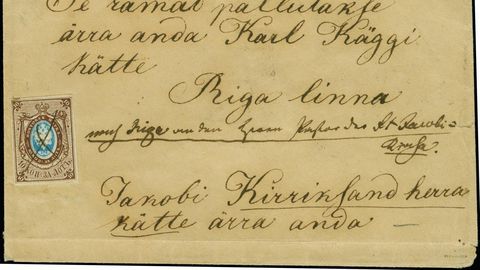 Se ramat pallutakse
ärra anda Karl Käggi
kätte
Riga linna
nach Riga an den Herrn Pastor der St Jacobi-
Jakobi Kirriksand herra
kätte ärra anda
10 КОП. ЗА ЛОТЪ.